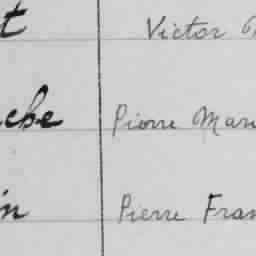 t Victor
ebe Pierre Mari
in Pierre Fran